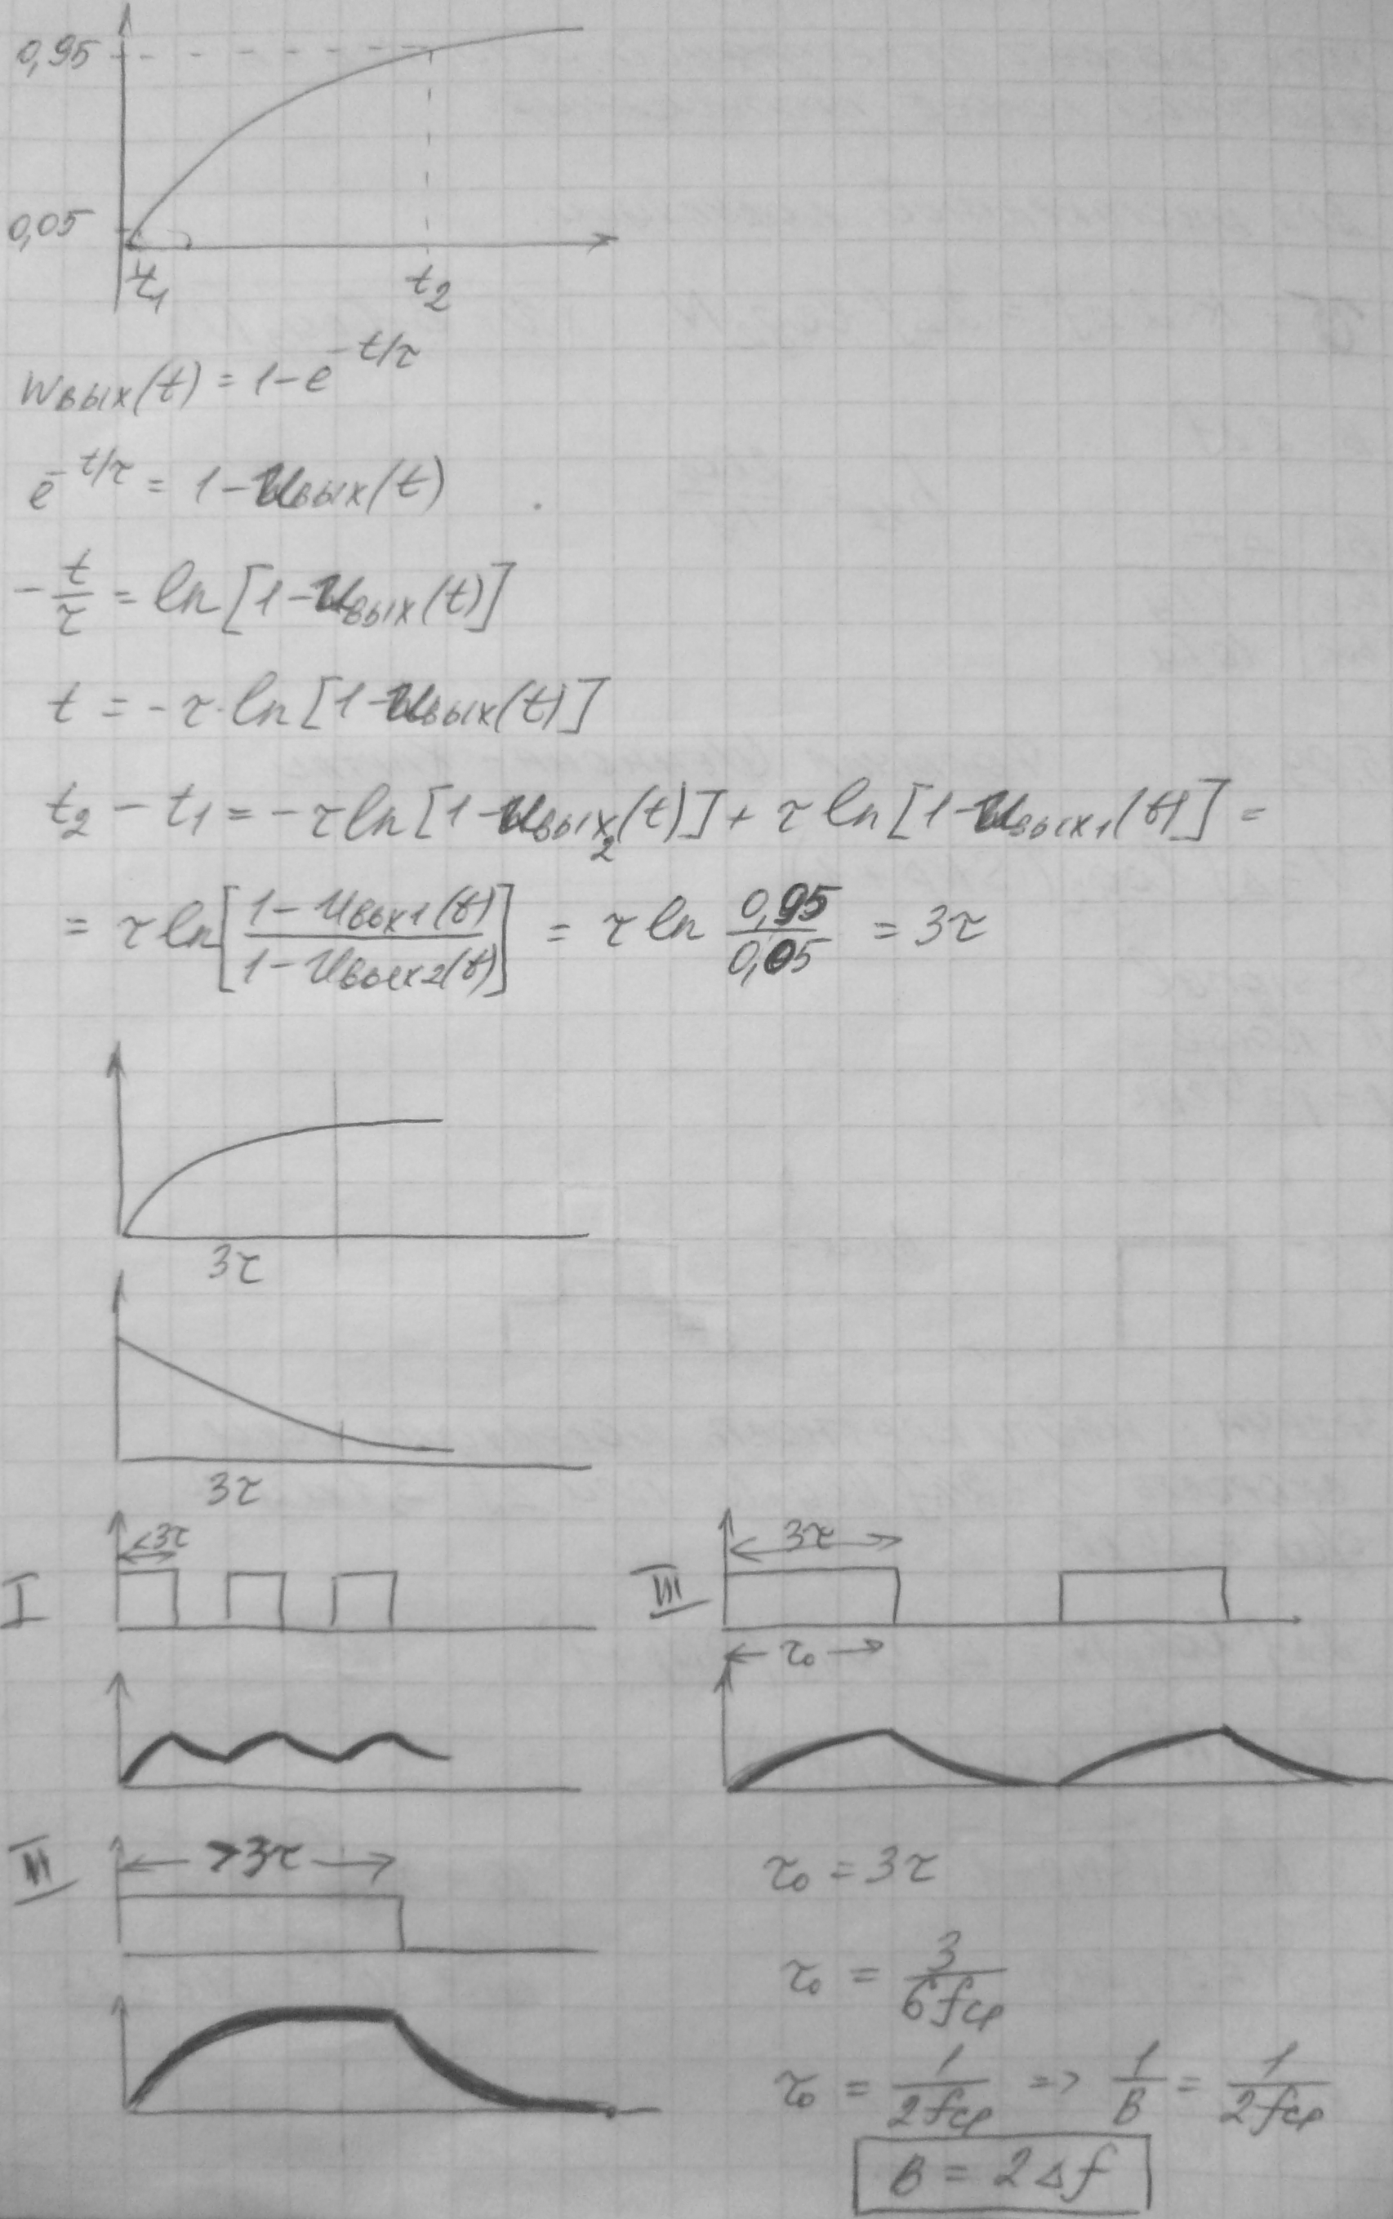 0,95
0,05
t₁
t₂
uвых(t) = 1 - e^{-t/τ}
e^{-t/τ} = 1 - uвых(t)
-t/τ = ln[1 - uвых(t)]
t = -τ·ln[1 - uвых(t)]
t₂ - t₁ = -τ ln[1 - uвых₂(t)] + τ ln[1 - uвых₁(t)] =
= τ ln[(1 - uвых1(t))/(1 - uвых2(t))] = τ ln 0,95/0,05 = 3τ
3τ
3τ
I
<3τ
II
>3τ
III
3τ
τ₀
τ₀ = 3τ
τ₀ = 3/6fср
τ₀ = 1/2fср => 1/B = 1/2fср
B = 2Δf